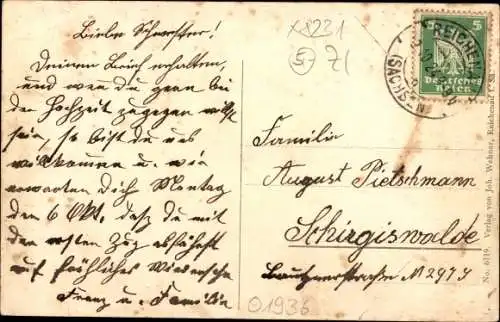 Liebe Schwester!
Deinen Brief erhalten,
und wenn du gern bei
der Hochzeit zugegen willst
sein, so bist du uns
willkommen u. wir
erwarten Dich Montag
den 6 Okt. daß du mit
den ersten Zug abfährst
auf fröhliches Wiedersehen
Franz u. Familie
X8231
5 Z1
REICHEN
(SACHSEN)
5
Deutsches
Reich
Familie
August Pietschmann
Schirgiswalde
Bautznerstraße N 297
01936
No. 6119. Verlag von Joh. Wehner, Reichenau i. S.